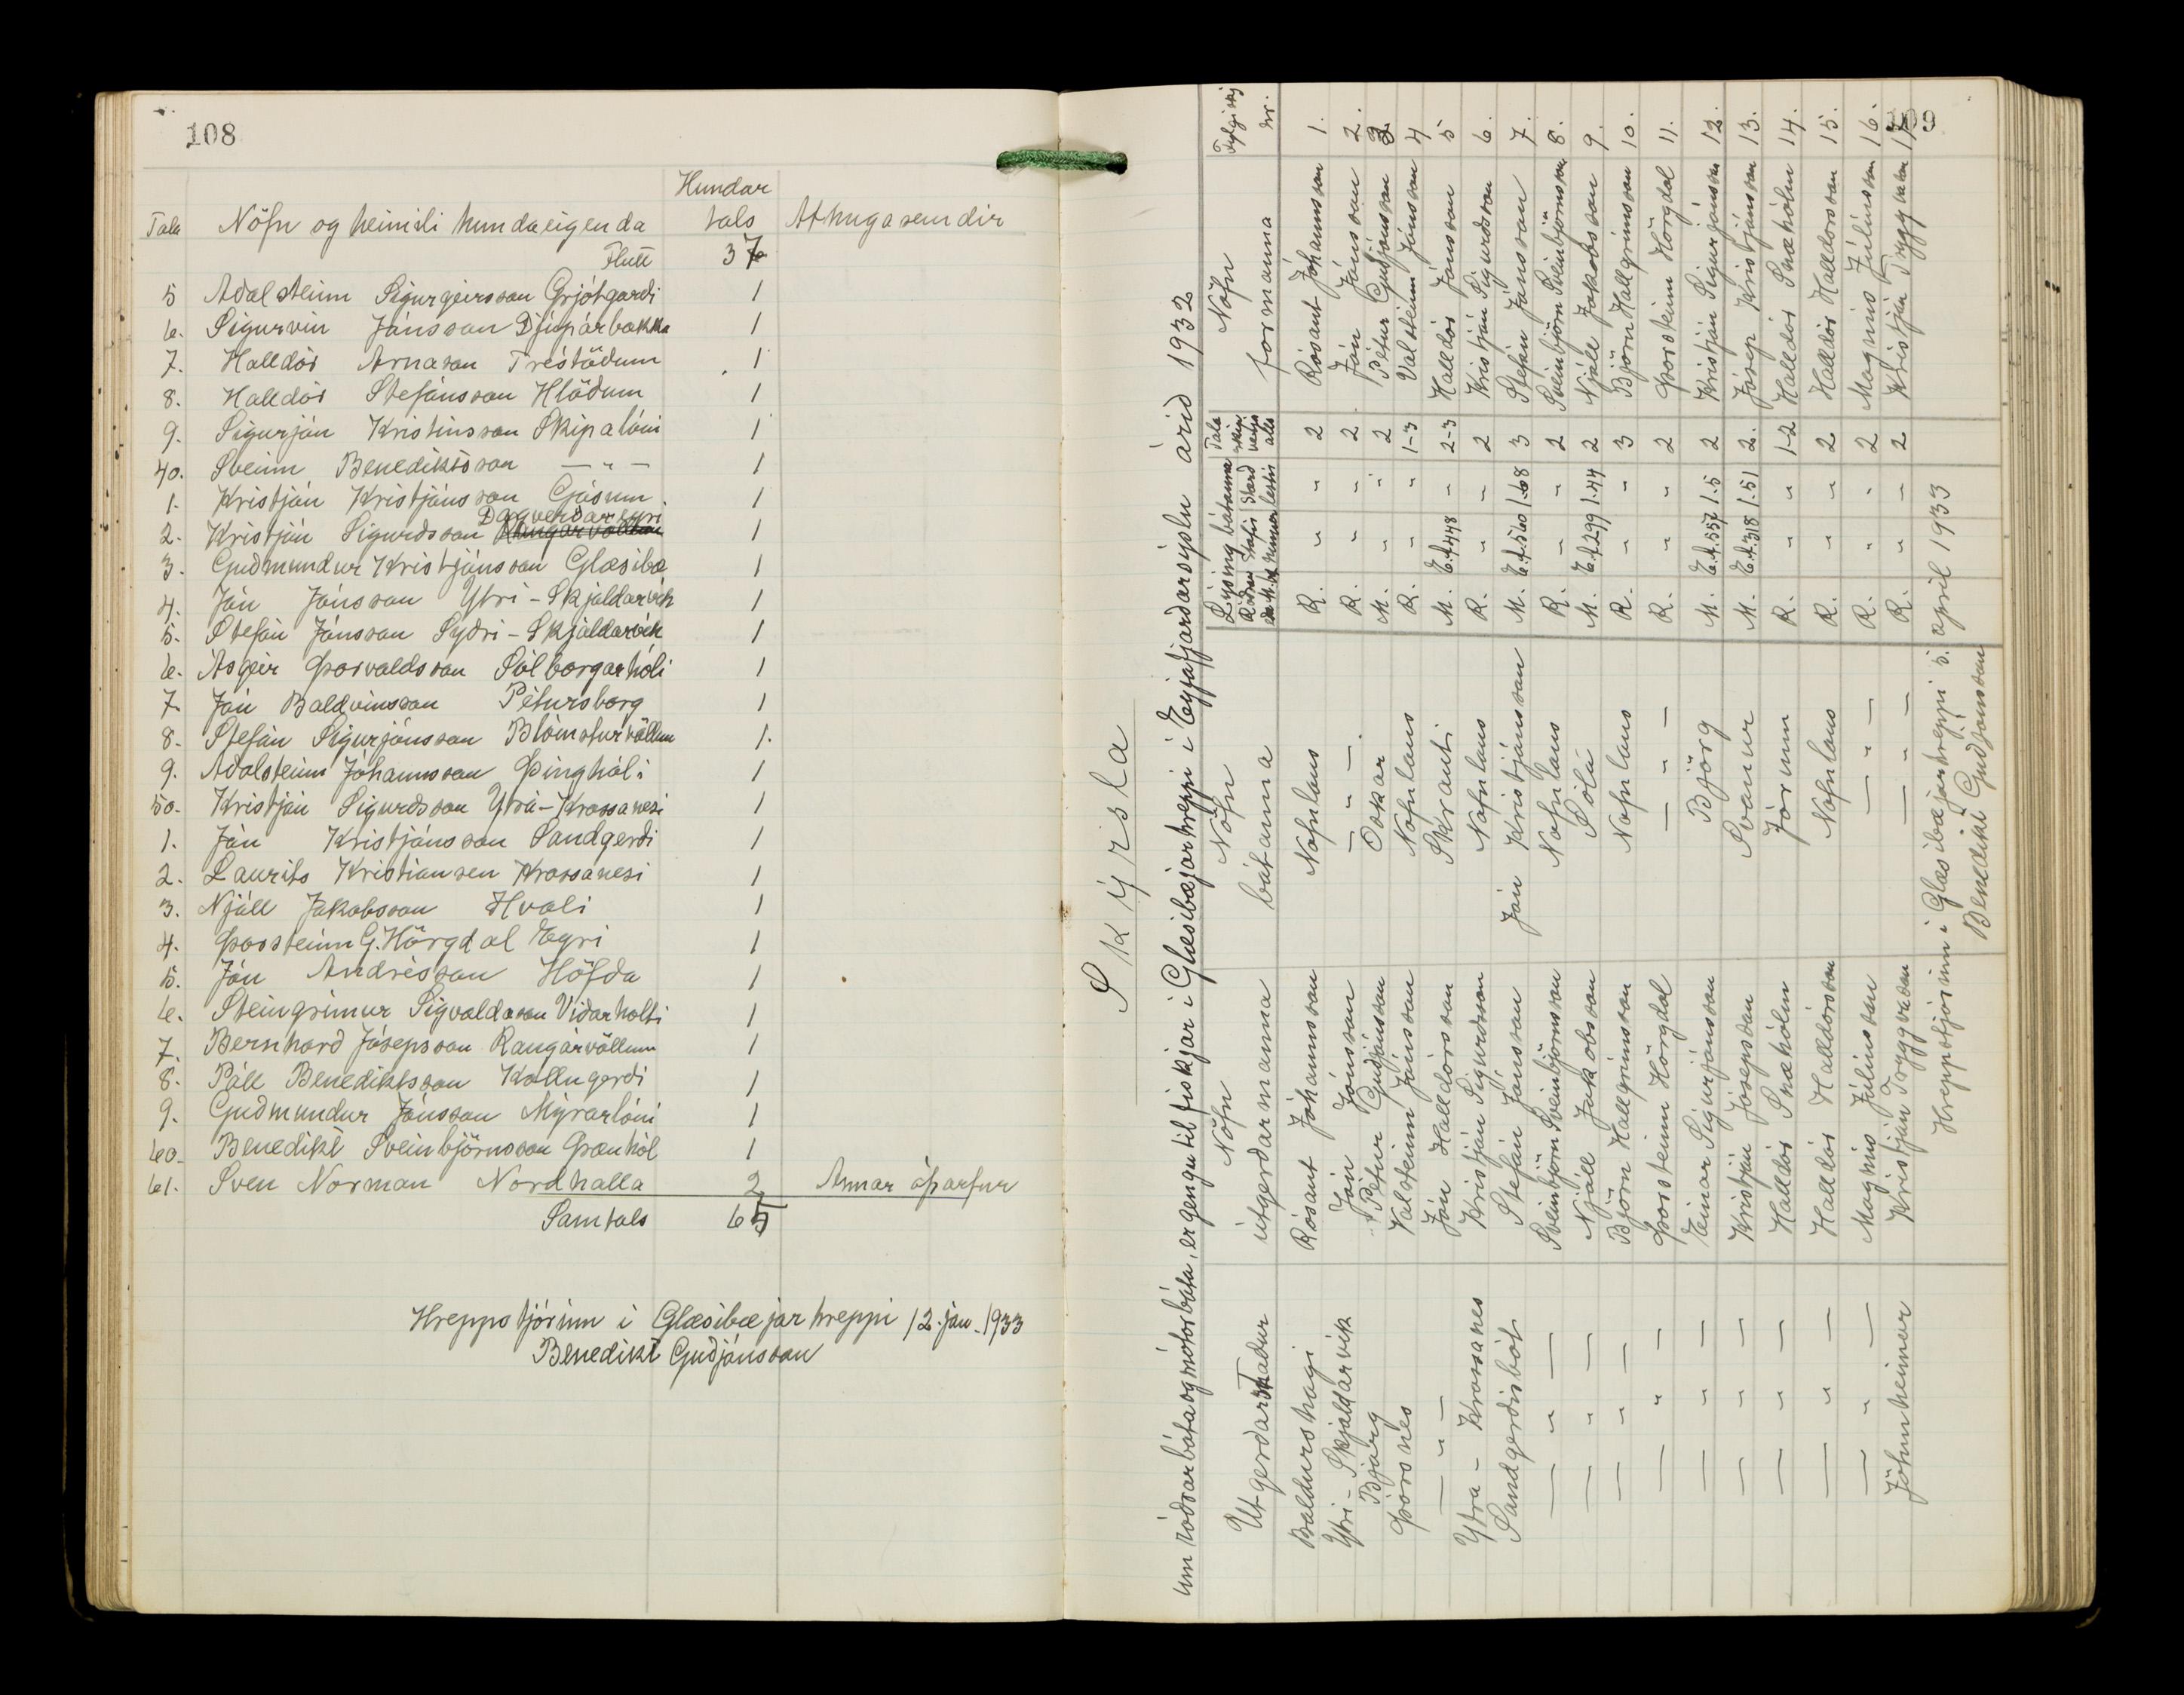 108
Hundar
Tala Nöfn og heimili hundaeigenda tals Athugasemdir
Flutt 37
5 Adalsteinn Sigurgeirsson Grjótgardi 1
6. Sigurvin Jónsson Djúpárbakka 1
7. Halldór Arnason Tréstödum 1
8. Halldór Stefánsson Hlödum 1
9. Sigurjón Kristinsson Skipalóni 1
40. Sveinn Benediktsson — " — 1
1. Kristján Kristjánsson Gásum 1
Dagverdareyri
2. Kristján Sigurdsson Rangárvöllum 1
3. Gudmundur Kristjánsson Glæsibæ 1
4. Jón Jónsson Ytri-Skjaldarvik 1
5. Stefán Jónsson Sydri-Skjaldarvik 1
6. Ásgeir Þorvaldsson Sólborgarhóli 1
7. Jón Baldvinsson Pétursborg 1
8. Stefán Sigurjónsson Blómsturvöllum 1.
9. Adalsteinn Jóhannsson Þinghóli 1
50. Kristján Sigurdsson Ytra-Krossanesi 1
1. Jón Kristjánsson Sandgerdi 1
2. Laurits Kristiansen Krossanesi 1
3. Njáll Jakobsson Hvoli 1
4. Þorsteinn G. Hörgdal Eyri 1
5. Jón Andrésson Höfda 1
6. Steingrimur Sigvaldason Vidarholti 1
7. Bernhard Jósepsson Rangárvöllum 1
8. Páll Benediktsson Kollugerdi 1
9. Gudmundur Jónsson Mýrarlóni 1
60. Benedikt Sveinbjörnsson Grænhól 1
61. Sven Norman Nordhalla 2 Annar óþarfur
Samtals 65
Hreppstjórinn i Glæsibæjarhreppi 12. jan. 1933
Benedikt Gudjónsson
109
Skýrsla
um ródrarbáta og mótorbáta, er gengu til fiskjar i Glæsibæjarhreppi i Eyjafjardarsýslu árid 1932
Útgerdarstadur Nöfn útgerdarmanna Nöfn bátanna Lýsing bátanna Tala skipverja alls Nöfn formanna Fylgiskj nr.
Baldurshagi Rósant Jóhannsson Nafnlaus R. " " 2 Rósant Jóhannsson 1.
Ytri-Skjaldarvik Jón Jónsson — " — R. " " 2 Jón Jónsson 2.
Bjarg Pétur Gudjónsson Oskar M. " " 2 Pétur Gudjónsson 3.
Þórsnes Valsteinn Jónsson Nafnlaus R. " " 1-3 Valsteinn Jónsson 4
— " — Jón Halldórsson Skrauti M. E.A.448 " 2-3 Halldór Jónsson 5
Ytra-Krossanes Kristján Sigurdsson Nafnlaus R. " " 2 Kristján Sigurdsson 6.
Sandgerdisbót Stefán Jónsson Jón Kristjánsson M. E.A.560 1.68 3 Stefán Jónsson 7.
— " — Sveinbjörn Sveinbjörnsson Nafnlaus R. " " 2 Sveinbjörn Sveinbjörnsson 8.
— " — Njáll Jakobsson Sóla M. E.A.299 1.44 2 Njáll Jakobsson 9.
— " — Björn Hallgrimsson Nafnlaus R. " " 3 Björn Hallgrimsson 10.
— " — Þorsteinn Hörgdal — " — R. " " 2 Þorsteinn Hörgdal 11.
— " — Einar Sigurjónsson Björg M. E.A.557 1.5 2 Kristján Sigurjónsson 12.
— " — Kristján Jósepsson Svanur M. E.A.318 1.51 2. Jósep Kristjánsson 13.
— " — Halldór Snæhólm Jórunn R. " " 1-2 Halldór Snæhólm 14.
— " — Halldór Halldórsson Nafnlaus R. " " 2 Halldór Halldórsson 15.
— " — Magnús Júliusson — " — R. " " 2 Magnús Júliusson 16.
Jötunheimar Kristján Tryggvason — " — R. " " 2 Kristján Tryggvason 17.
Hreppstjórinn i Glæsibæjarhreppi 5. april 1933
Benedikt Gudjónsson